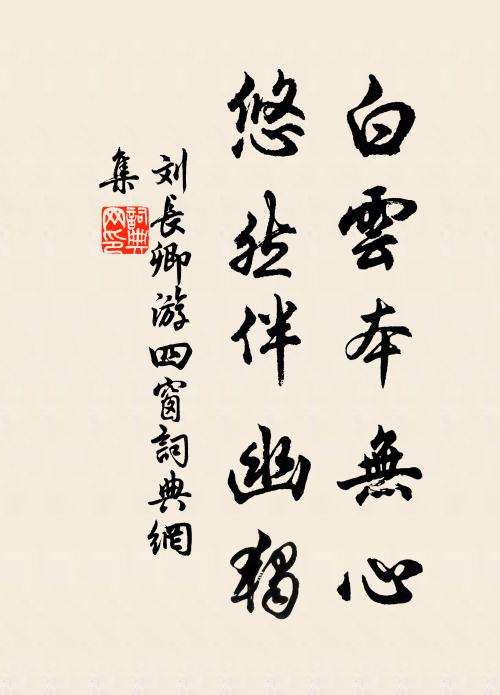 白雲本無心
悠然伴幽獨
刘長卿游四窗詞典網
集
詞典网印